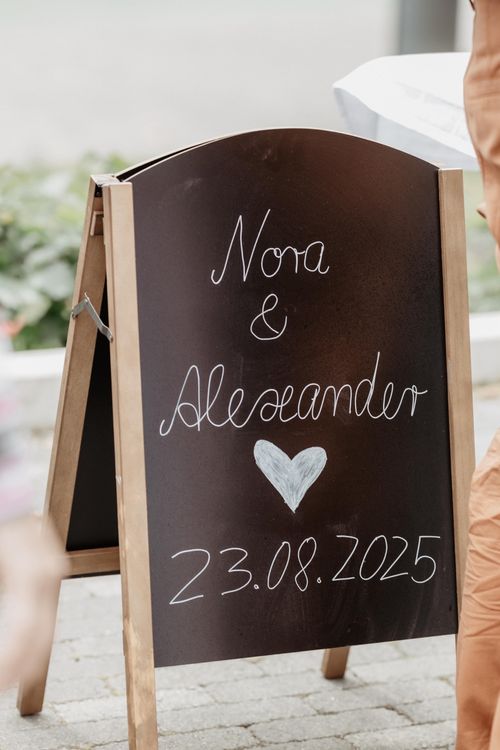 Nora
&
Alexander
23.08.2025